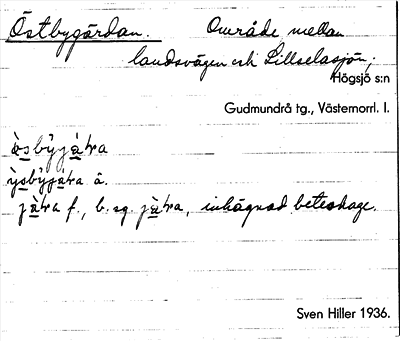 Östbygärdan. Område mellan
landsvägen och Lillselasjön;
Högsjö s:n
Gudmundrå tg., Västernorrl. l.
å.
f., b. sg. inhägnad beteshage.
Sven Hiller 1936.